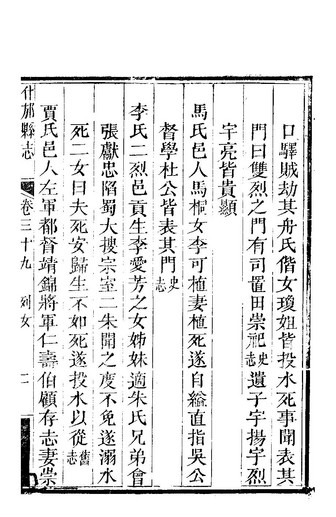 口驛賊劫其舟氏偕女瓊姐皆投水死事聞表其
門曰雙烈之門有司置田崇祀史志遺子宇揚宇烈
宇亮皆貴顯
馬氏邑人馬桐女李可植妻植死遂自縊直指吳公
督學杜公皆表其門史志
李氏二烈邑貢生李愛芳之女姊妹適朱氏兄弟會
張獻忠陷蜀大搜宗室二朱聞之度不免遂溺水
死二女曰夫死安歸生不如死遂投水以從舊志
賈氏邑人左軍都督靖錦將軍仁壽伯顧存志妻崇
什邡縣志 卷三十九 列女 二